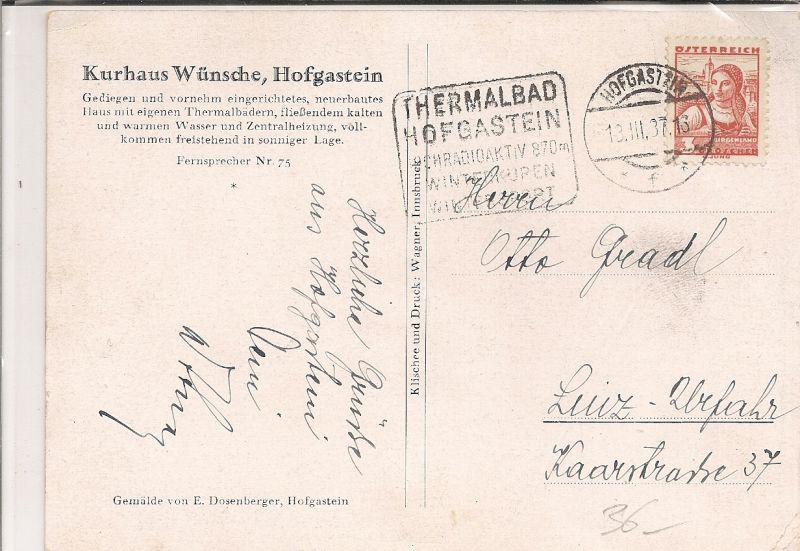 Kurhaus Wünsche, Hofgastein
Gediegen und vornehm eingerichtetes, neuerbautes
Haus mit eigenen Thermalbädern, fließendem kalten
und warmen Wasser und Zentralheizung, voll-
kommen freistehend in sonniger Lage.
Fernsprecher Nr. 75
*
Herzliche Grüße
aus Hofgastein
Dein
Gemälde von E. Dosenberger, Hofgastein
Klischee und Druck: Wagner, Innsbruck
THERMALBAD
HOFGASTEIN
HOCHRADIOAKTIV 870m
WINTERKUREN
WINTERSPORT
HOFGASTEIN
13.III.37.16
* f *
ÖSTERREICH
3
BURGENLAND
Herrn
Otto Gradl
Linz-Urfahr
Kaarstraße 37
36-